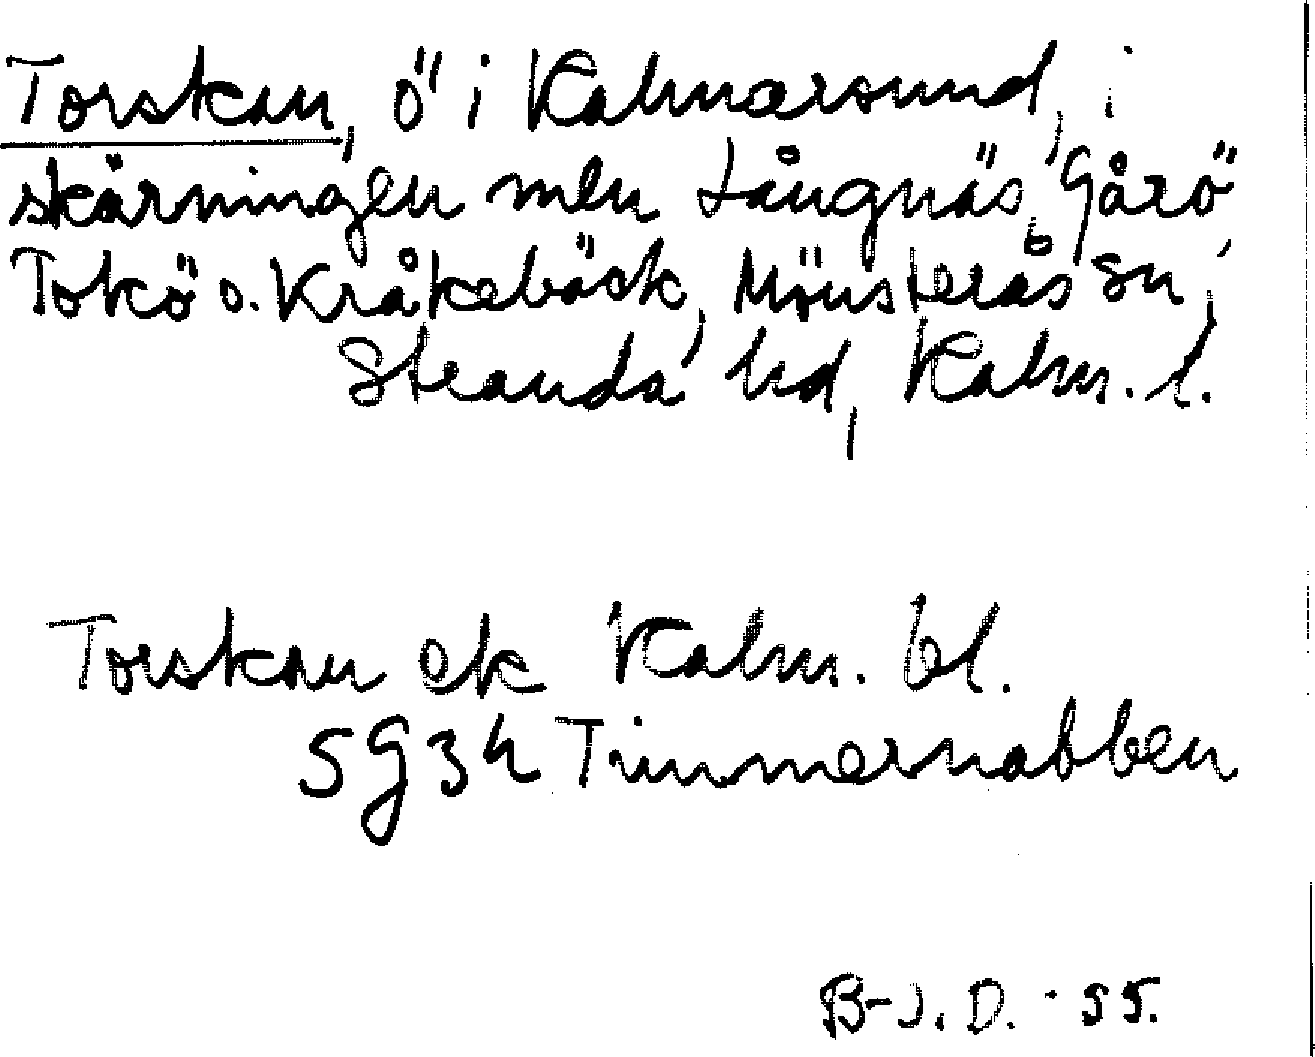 Torskan, ö i Kalmarsund, i
skärningen mln Långnäs, Gårö,
Tokö o. Kråkebäck, Mönsterås sn,
Stranda hd, Kalm. l.
Torskan ek Kalm. bl.
5 G 3 h Timmernabben
B-J. D. - 55.